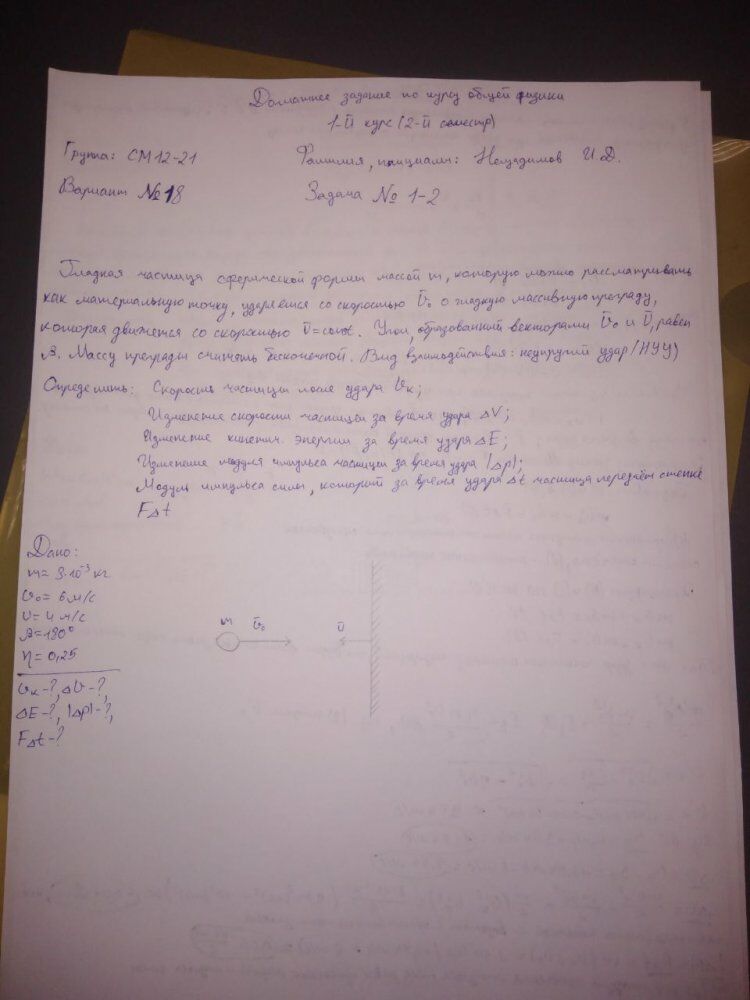 Домашнее задание по курсу общей физики
1-й курс (2-й семестр)
Группа: СМ12-21 Фамилия, инициалы: И.Д.
Вариант №18 Задача № 1-2
Гладкая частица сферической формы массой m, которую можно рассматривать
как материальную точку, ударяется со скоростью v̄₀ о гладкую массивную преграду,
которая движется со скоростью Ū=const. Угол, образованный векторами v̄₀ и Ū, равен
β. Массу преграды считать бесконечной. Вид взаимодействия: неупругий удар (НУУ)
Определить: Скорость частицы после удара vк;
Изменение скорости частицы за время удара ΔV;
Изменение кинетич. энергии за время удара ΔE;
Изменение модуля импульса частицы за время удара |Δp|;
Модуль импульса силы, который за время удара Δt частица передаёт стенке
FΔt
Дано:
m=3·10⁻³ кг
v₀= 6 м/с
U= 4 м/с
β=180°
η=0,25
vк-?, Δv-?,
ΔE-?, |Δp|-?,
FΔt-?
m v̄₀ Ū